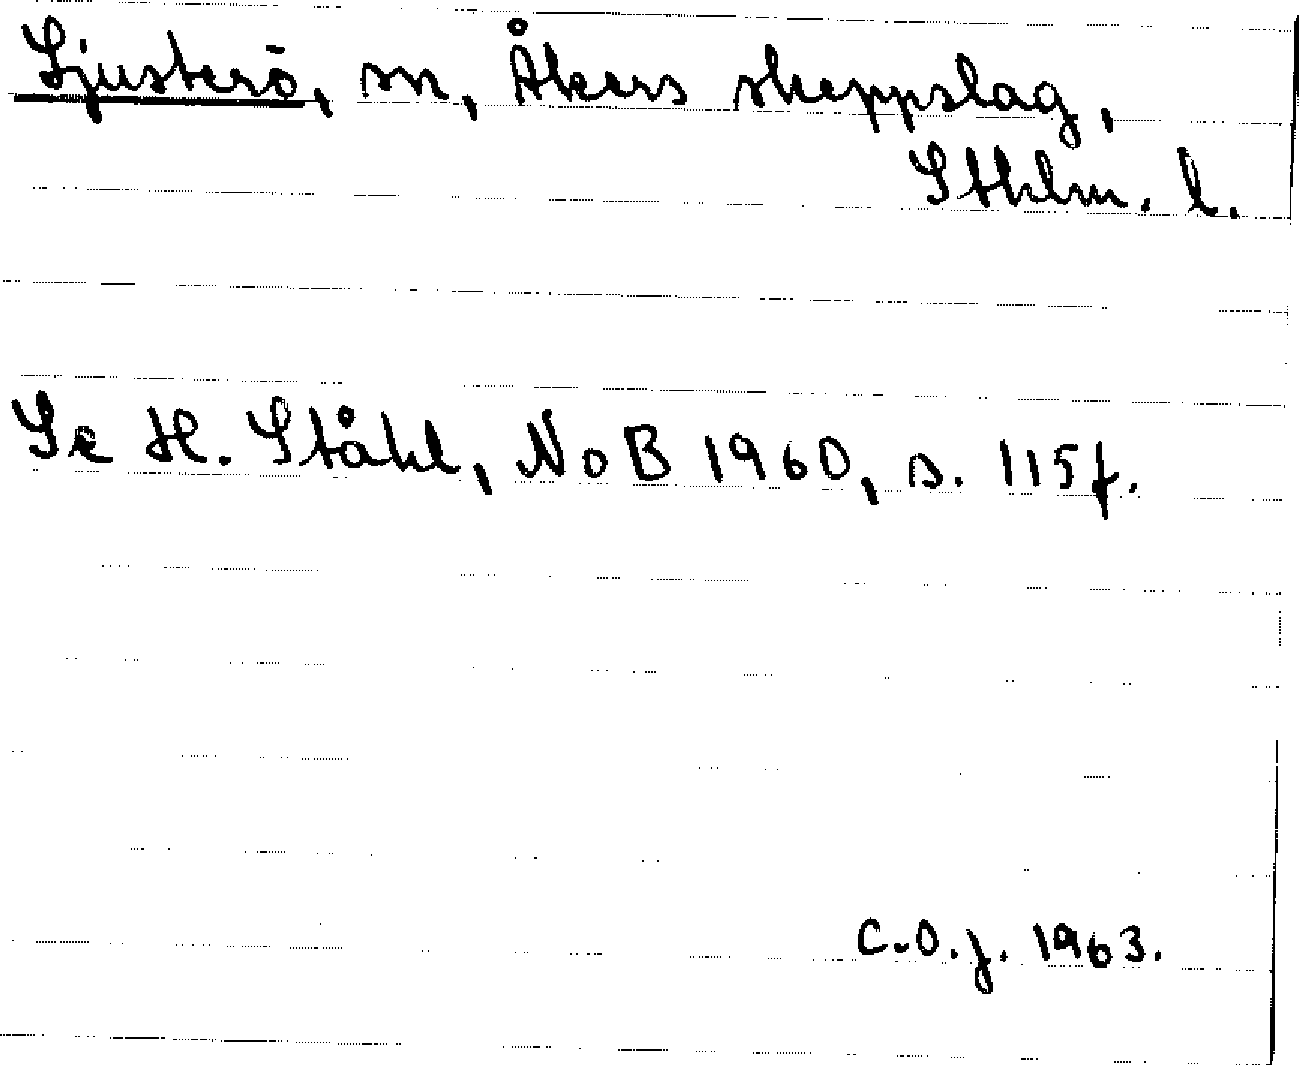 Ljusterö, sn, Åkers skeppslag,
Sthlm. l.
Se H. Ståhl, NoB 1960, s. 115f.
C.O.J. 1963.